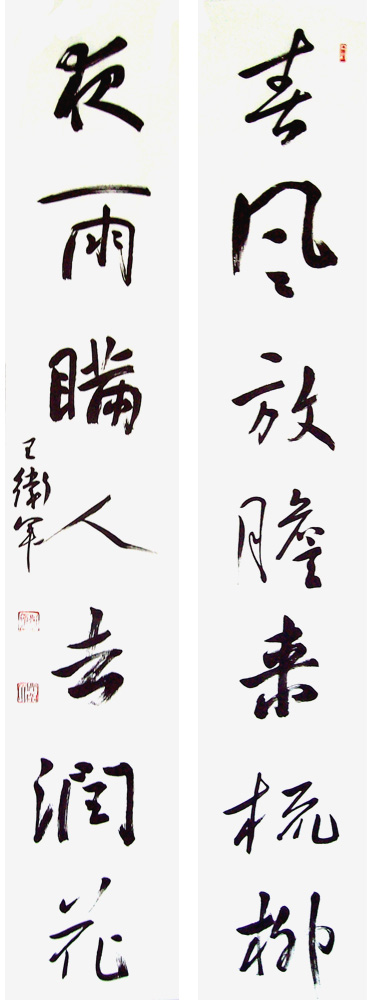 春风放膽来梳柳
夜雨瞒人去润花
王卫军